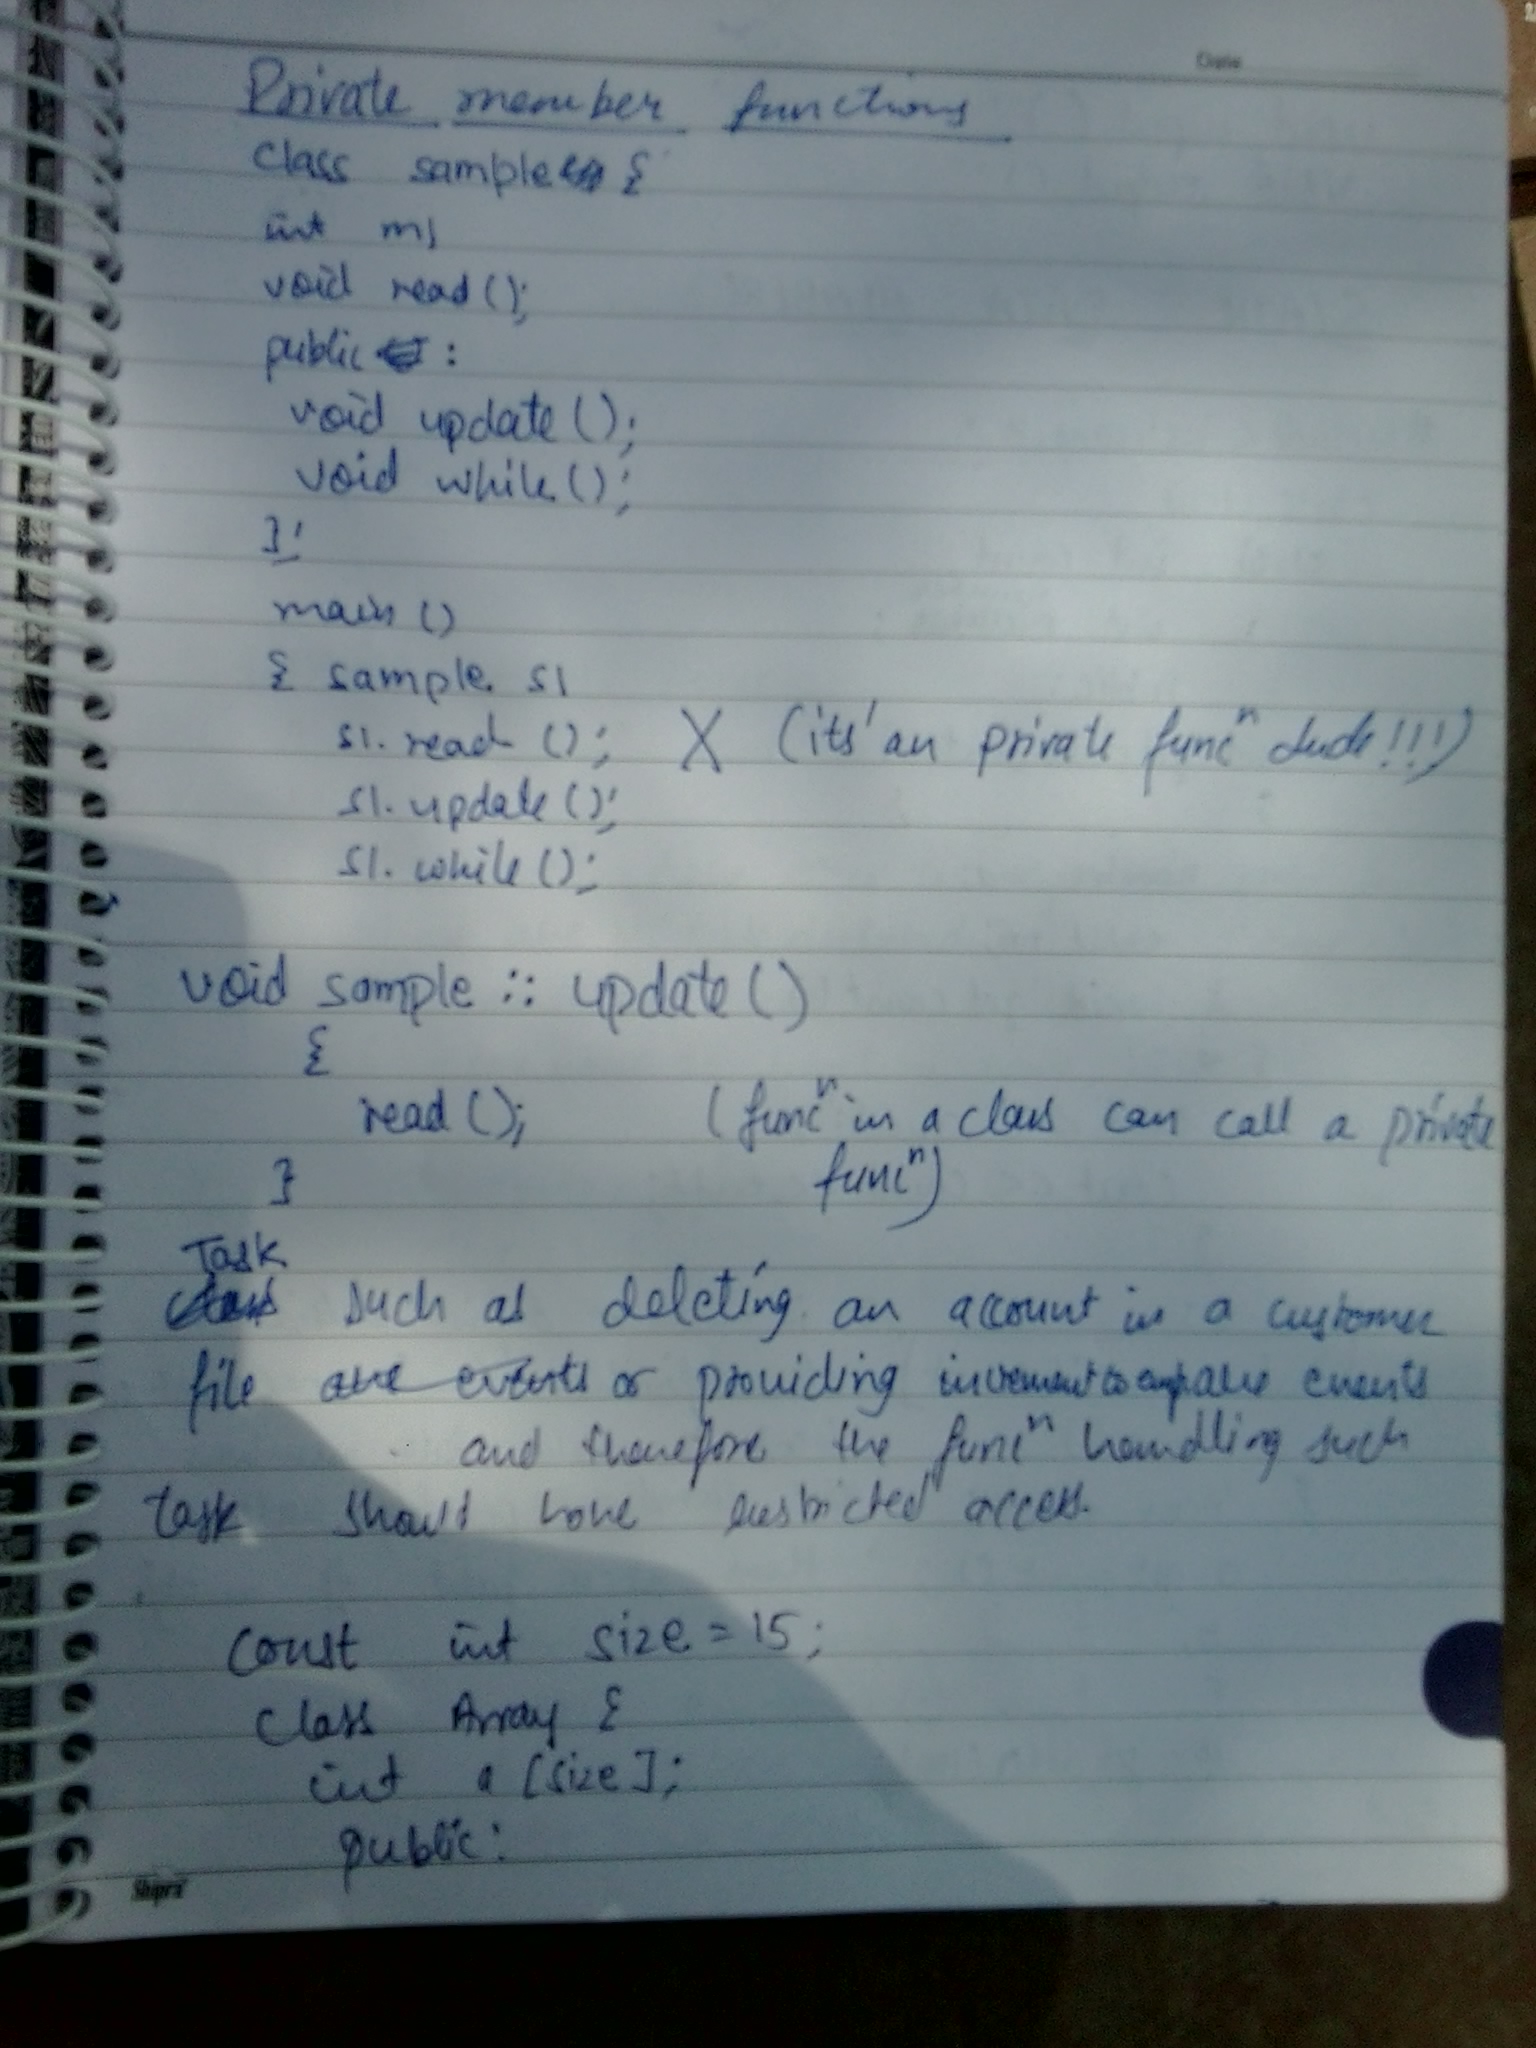 Date
Private member functions
class sample {
int m;
void read ();
public :
void update ();
void while ();
};
main ()
{ sample s1
s1. read (); X (its' an private funcⁿ dude!!!)
s1. update ();
s1. while ();
void sample :: update ()
{
read (); (funcⁿ in a class can call a private
} funcⁿ)
Task
class such as deleting an account in a customer
file are events or providing increment to events
and therefore the funcⁿ handling such
task should have restricted access.
const int size = 15;
class Array {
int a [size];
public:
Shipra